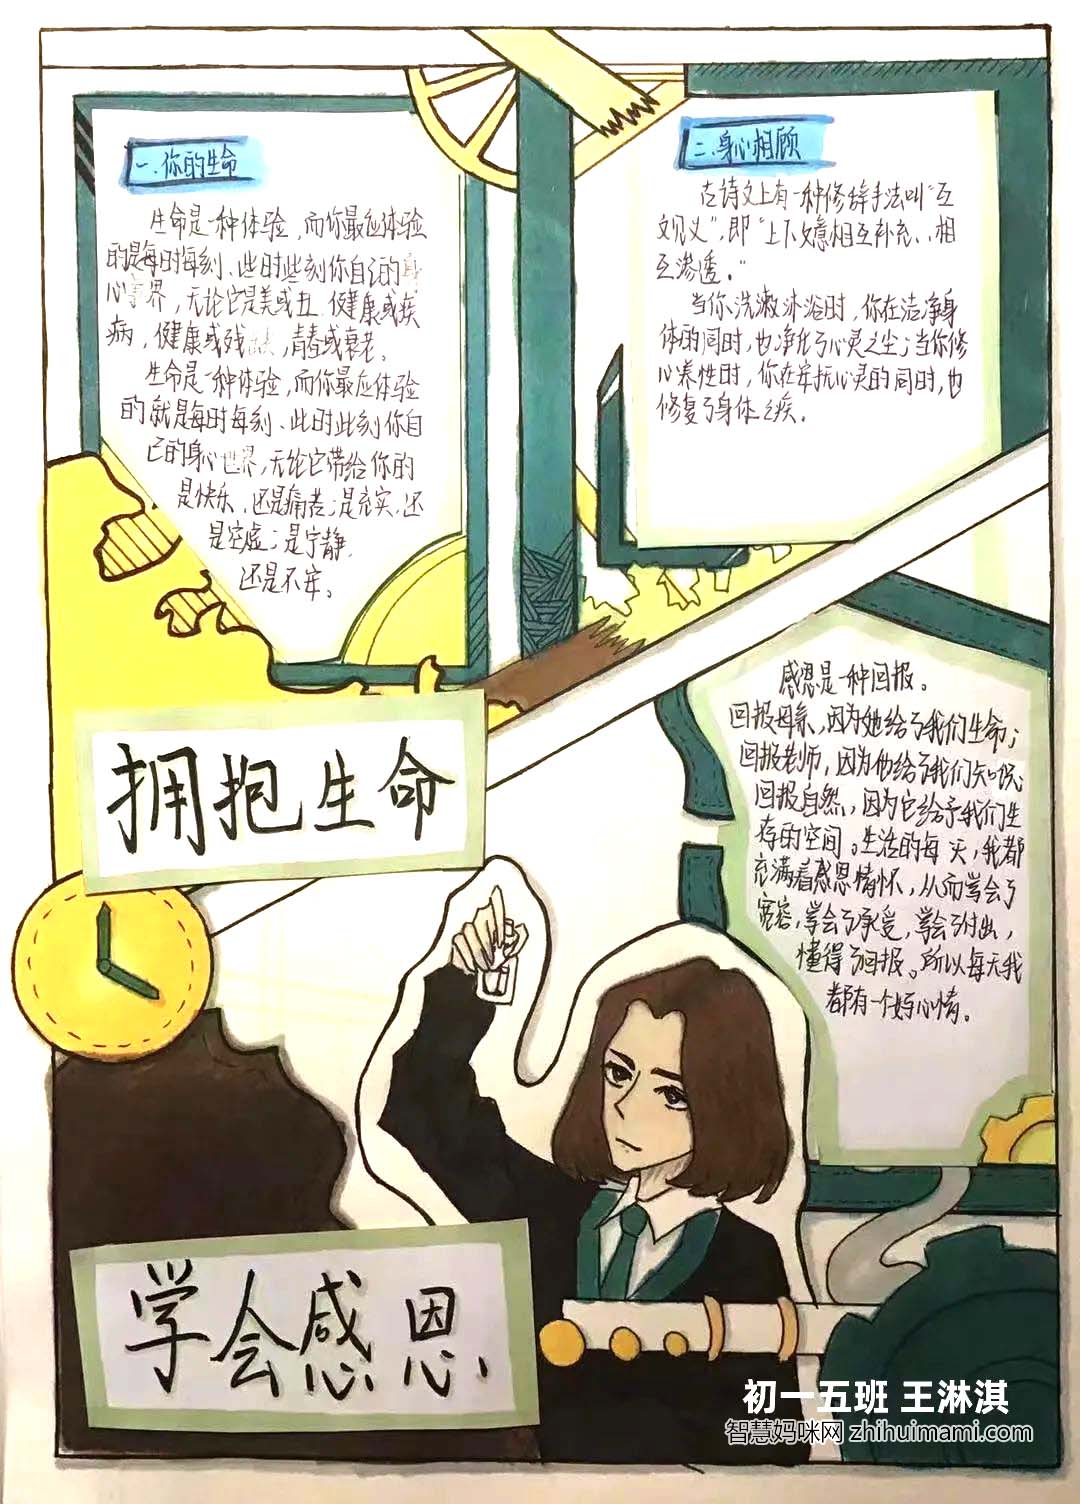 一.你的生命
生命是一种体验,而你最应体验
的是每时每刻、此时此刻你自己的身
心世界,无论它是美或丑、健康或疾
病,健康或残,青春或衰老。
生命是一种体验,而你最应体验
的就是每时每刻、此时此刻你自
己的身心世界,无论它带给你的
是快乐,还是痛苦;是充实,还
是空虚;是宁静,
还是不安。
二.身心相顾
古诗文上有一种修辞手法叫“互
文见义”,即“上下文意相互补充、相
互渗透。”
当你洗漱沐浴时,你在洁净身
体的同时,也净化了心灵之尘;当你修
心养性时,你在安抚心灵的同时,也
修复了身体之疾.
感恩是一种回报。
回报母亲,因为她给了我们生命;
回报老师,因为他给了我们知识;
回报自然,因为它给予我们生
存的空间。生活的每一天,我都
充满着感恩情怀,从而学会了
宽容,学会了承受,学会了付出,
懂得了回报。所以每天我
都有一个好心情。
拥抱生命
学会感恩
初一五班 王淋淇
智慧妈咪网 zhihuimami.com